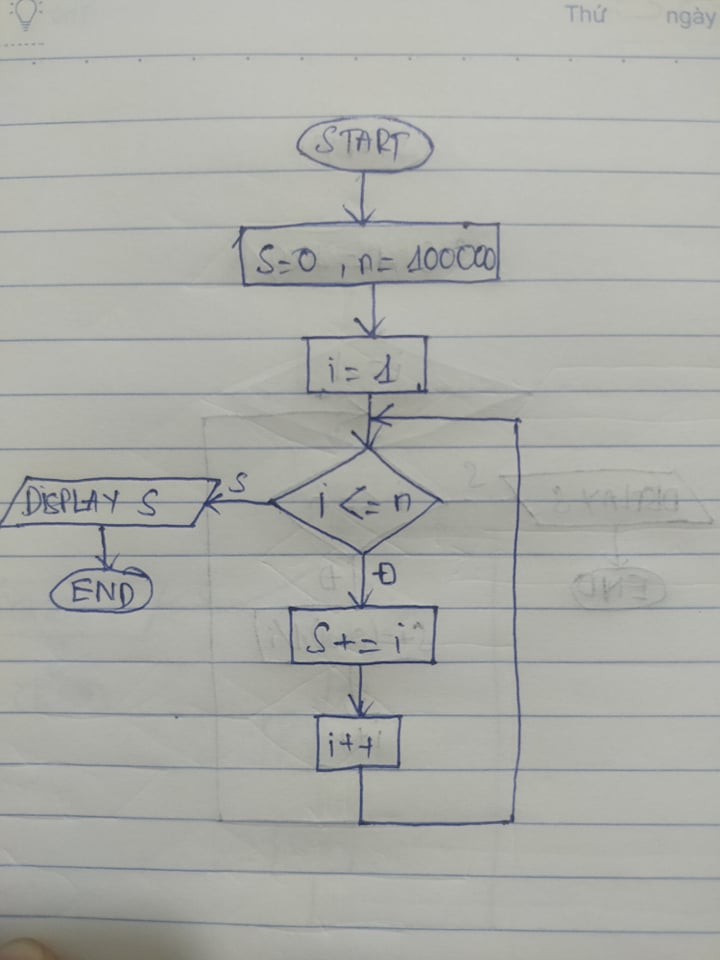 Thứ ngày
START
S=0 , n= 100000
i= 1
i <= n
S
DISPLAY S
END
Đ
S+= i
i++